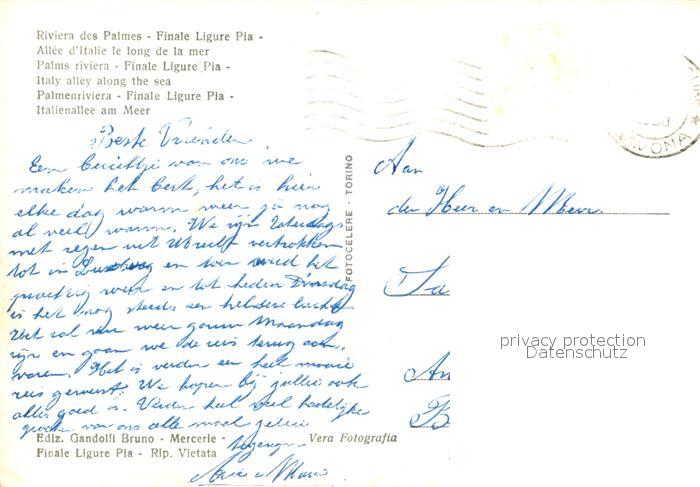 Riviera des Palmes - Finale Ligure Pia -
Allée d'Italie le long de la mer
Palms riviera - Finale Ligure Pia -
Italy alley along the sea
Palmenriviera - Finale Ligure Pia -
Italienallee am Meer
Beste Vrienden,
Een berichtje van ons we
maken het best, het is hier
elke dag warm weer ja nog
al veel warm. We zijn Zaterdags
met regen uit Utrecht vertrokken
tot in en toen werd het
prachtig weer en tot heden Dinsdag
is het nog steeds een heldere lucht
Het zal wel weer gauw Maandag
zijn en gaan we de reis terug aan-
varen. Het is verder een heel mooie
reis geweest. We hopen bij jullie ook
alles goed is. Verder heel veel hartelijke
groeten van ons alle
FOTOCELERE - TORINO
Aan
der Heer en Mevr.
privacy protection
Datenschutz
Ediz. Gandolfi Bruno - Mercerie - Vera Fotografia
Finale Ligure Pia - Rip. Vietata